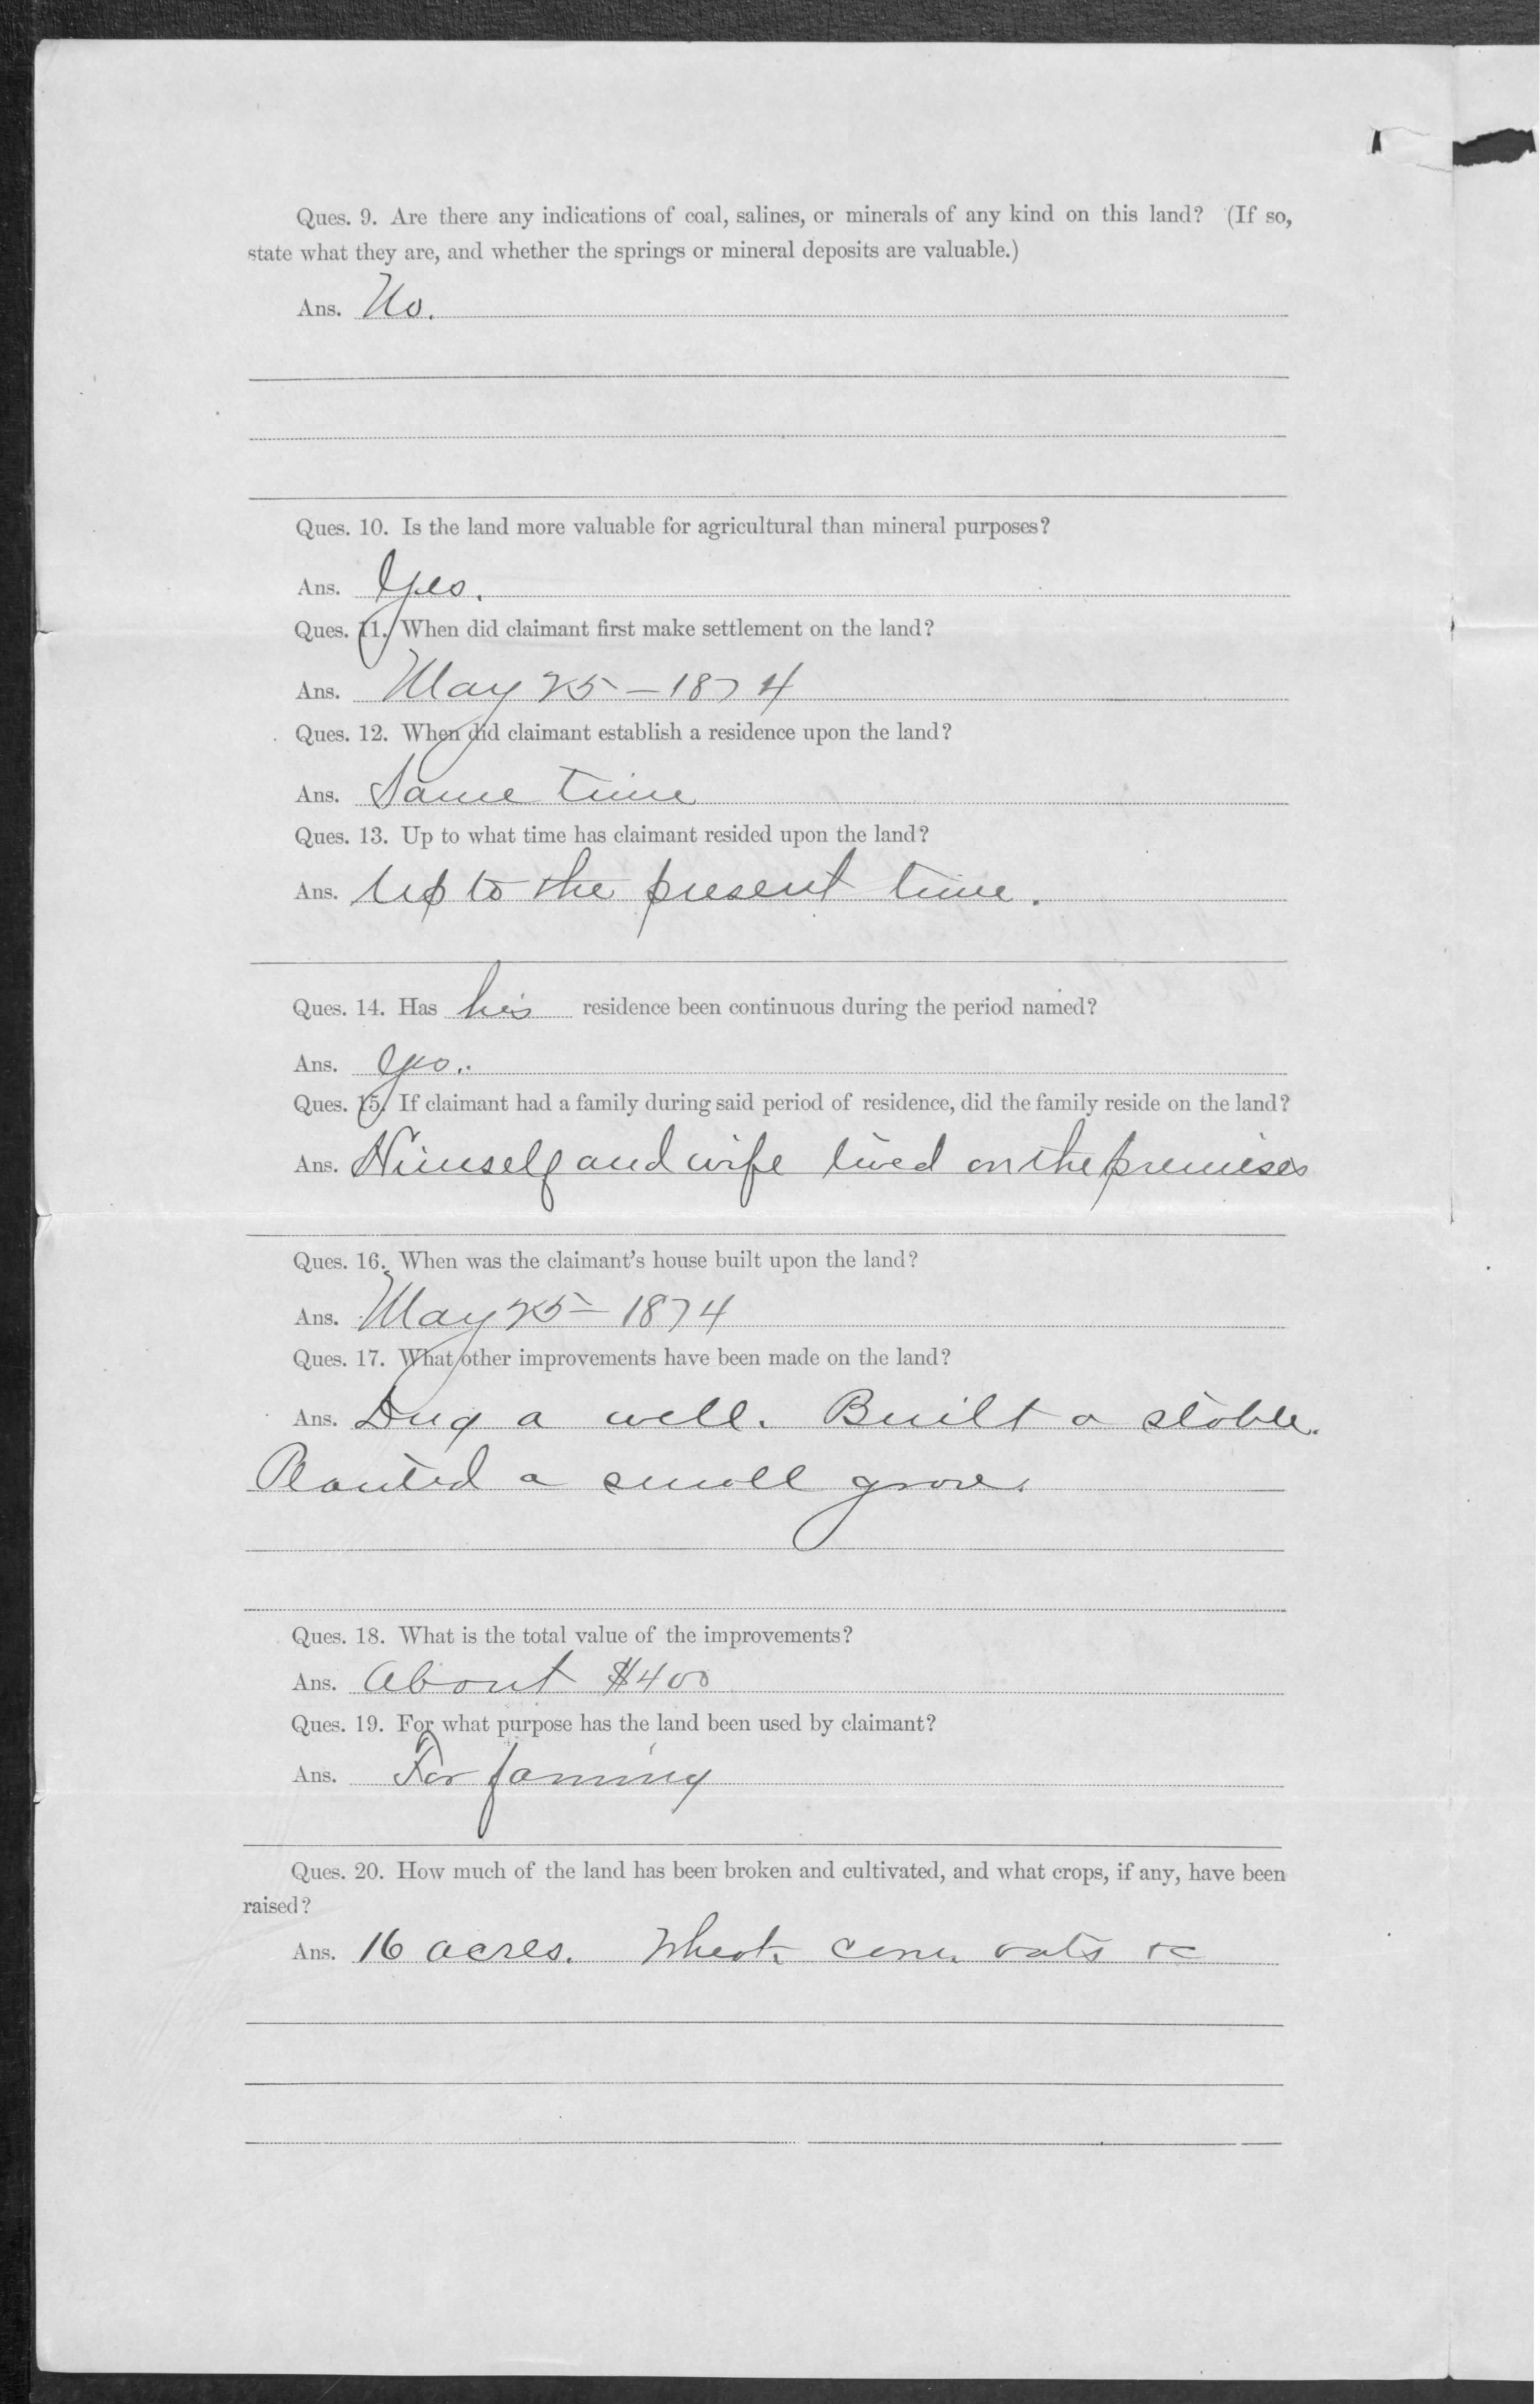 Ques. 9. Are there any indications of coal, salines, or minerals of any kind on this land? (If so,
state what they are, and whether the springs or mineral deposits are valuable.)
Ans. No.
Ques. 10. Is the land more valuable for agricultural than mineral purposes?
Ans. Yes.
Ques. 11. When did claimant first make settlement on the land?
Ans. May 25 - 1874
Ques. 12. When did claimant establish a residence upon the land?
Ans. Same time
Ques. 13. Up to what time has claimant resided upon the land?
Ans. Up to the present time.
Ques. 14. Has his residence been continuous during the period named?
Ans. Yes.
Ques. 15. If claimant had a family during said period of residence, did the family reside on the land?
Ans. Himself and wife lived on the premises
Ques. 16. When was the claimant's house built upon the land?
Ans. May 25 - 1874
Ques. 17. What other improvements have been made on the land?
Ans. Dug a well. Built a stable.
Planted a small grove.
Ques. 18. What is the total value of the improvements?
Ans. About $400
Ques. 19. For what purpose has the land been used by claimant?
Ans. For farming
Ques. 20. How much of the land has been broken and cultivated, and what crops, if any, have been
raised?
Ans. 16 acres. Wheat, corn, oats &c